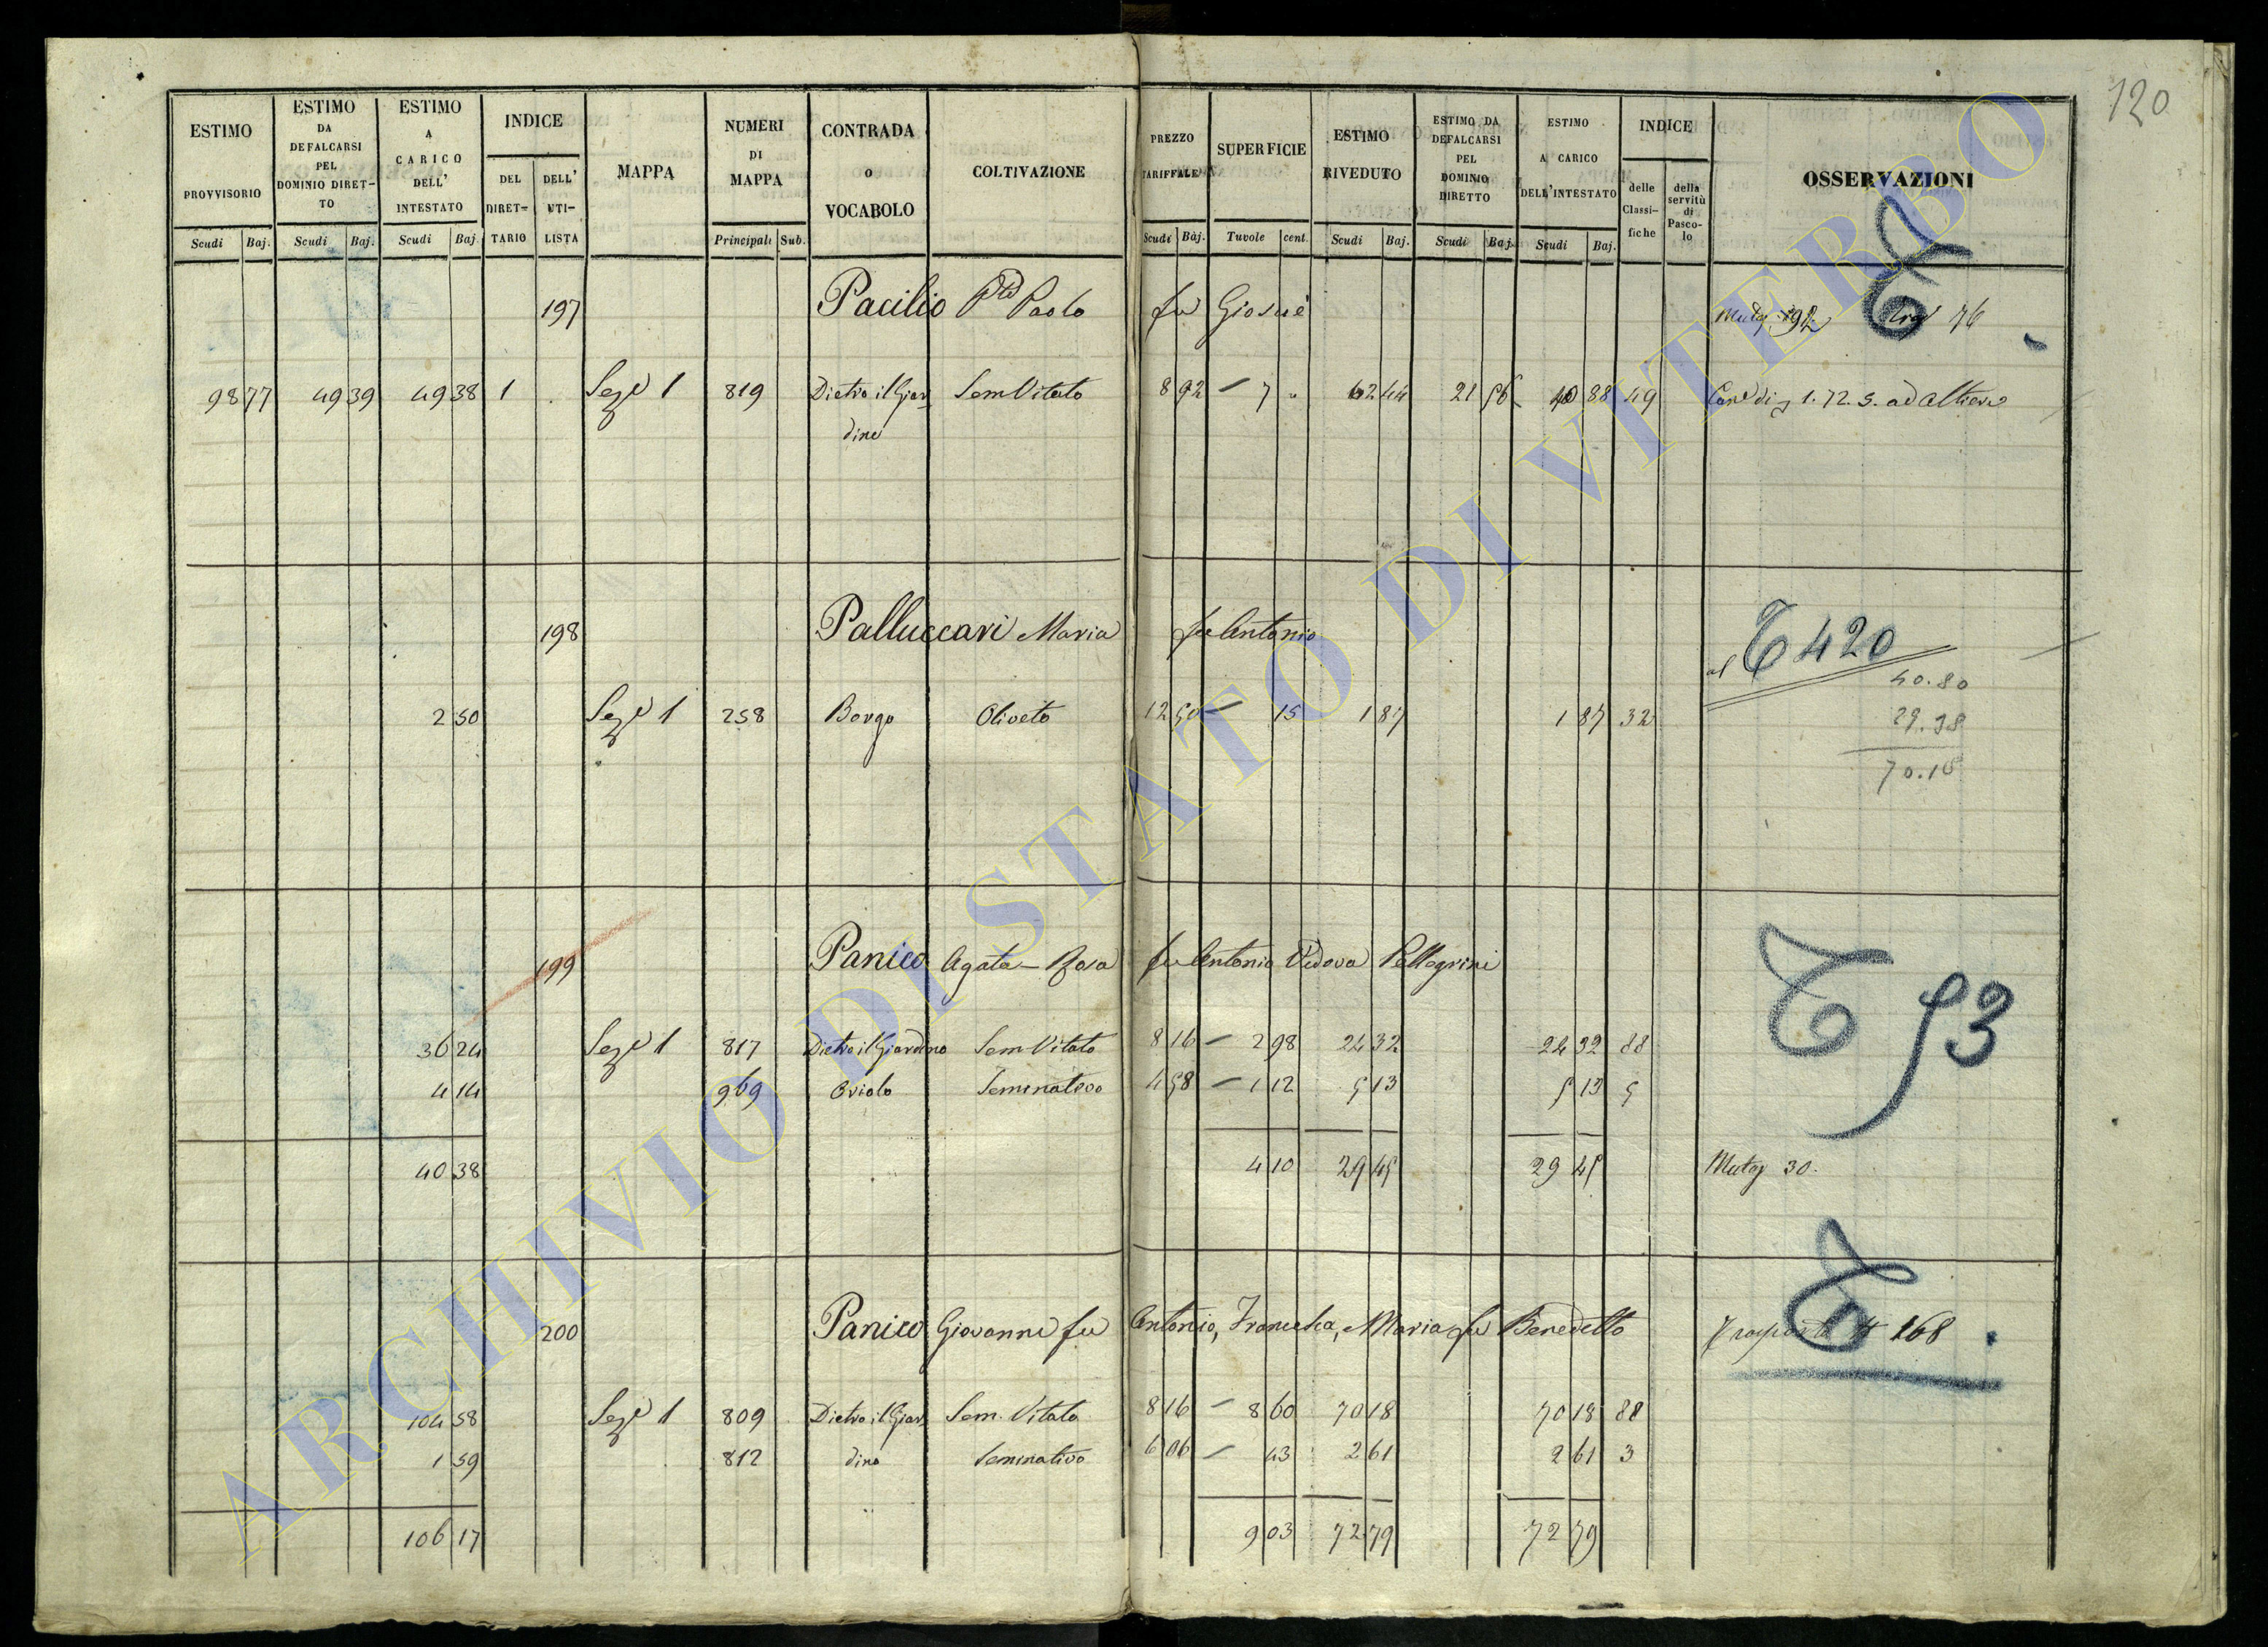 120
ESTIMO PROVVISORIO
ESTIMO DA DEFALCARSI PEL DOMINIO DIRET- TO
ESTIMO A CARICO DELL' INTESTATO
INDICE
DEL DIRET- TARIO
DELL' UTI- LISTA
MAPPA
NUMERI DI MAPPA
CONTRADA o VOCABOLO
COLTIVAZIONE
PREZZO TARIFFALE
SUPERFICIE
ESTIMO RIVEDUTO
ESTIMO DA DEFALCARSI PEL DOMINIO DIRETTO
ESTIMO A CARICO DELL'INTESTATO
INDICE
delle Classi- fiche
della servitù di Pasco- lo
OSSERVAZIONI
Scudi Baj. Scudi Baj. Scudi Baj. Principali Sub. Scudi Baj. Tuvole cent. Scudi Baj. Scudi Baj. Scudi Baj.
197 Pacilio Paolo fu Giosuè 76
98 77 49 39 49 38 1 Seze 1 819 Dietro il Giar- Sem Vitato 8 92 - 7 " 62 44 21 56 40 88 49
dino
198 Palluccari Maria fu Antonio al T 420
40.80
2 50 Seze 1 258 Borgo Oliveto 12 50 - 15 1 87 1 87 32 29.38
70.18
199 Panico Agata - Rosa fu Antonio Vedova Pellegrini T 53
36 24 Seze 1 817 Dietro il Giardino Sem Vitato 8 16 - 2 98 24 32 24 32 88
4 14 969 Oviolo Seminativo 4 58 - 1 12 5 13 5 13 5
40 38 4 10 29 45 29 45 Mutaz 30.
200 Panico Giovanni fu Antonio, Francesca, Maria fu Benedetto 168
104 58 Seze 1 809 Dietro il Giar Sem. Vitato 8 16 - 8 60 70 18 70 18 88
1 59 812 dino Seminativo 6 06 - 43 2 61 2 61 3
106 17 9 03 72 79 72 79
ARCHIVIO DI STATO DI VITERBO